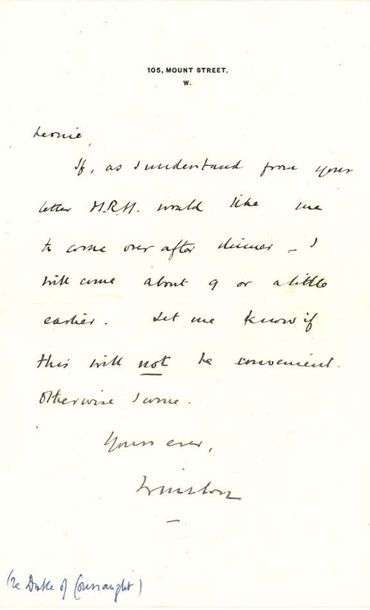 105, MOUNT STREET,
W.
Leonie,
If, as I understand from your
letter H.R.H. would like me
to come over after dinner – I
will come about 9 or a little
earlier. Let me know if
this will not be convenient.
Otherwise I come.
Yours ever,
Winston
(re Duke of Connaught)